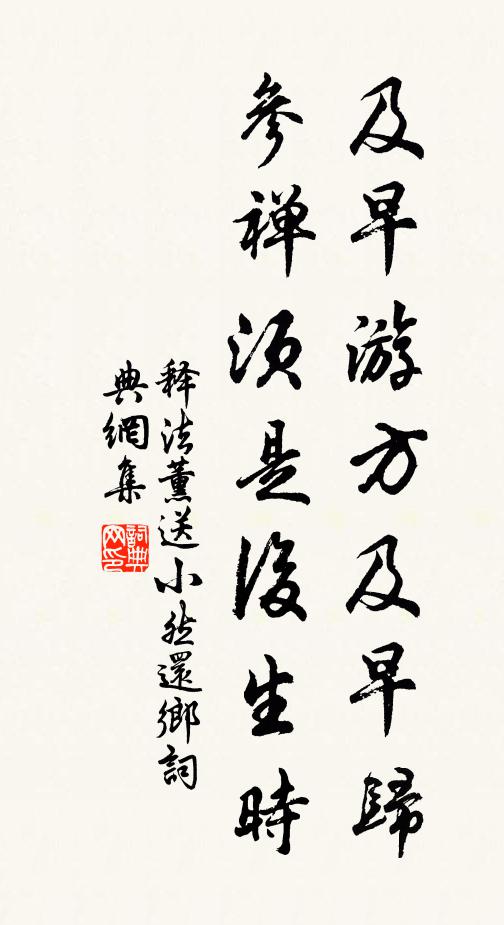 及早游方及早歸
參禅須是後生時
释法薰送小师還鄉詞
典網集
詞典网印